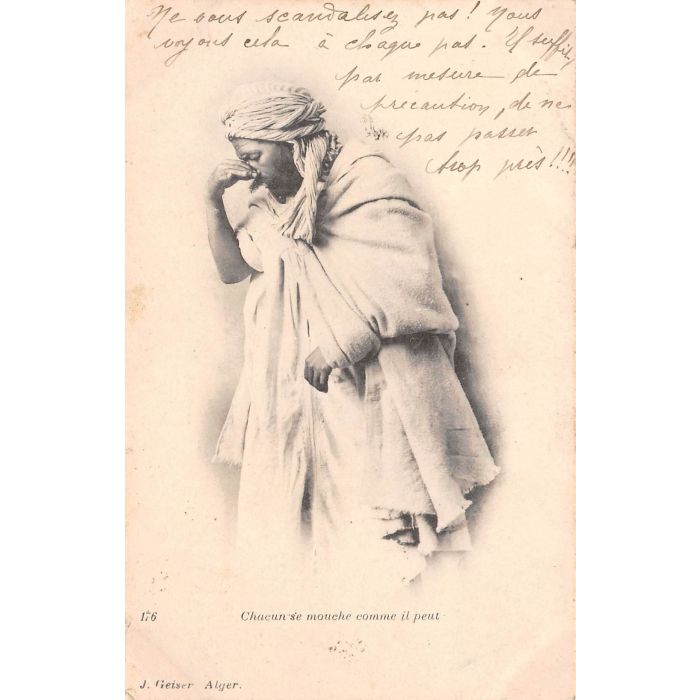 Ne vous scandalisez pas! Nous
voyons cela à chaque pas. Il suffit,
par mesure de
précaution, de ne
pas passer
trop près!!!!
176
Chacun se mouche comme il peut
J. Geiser Alger.